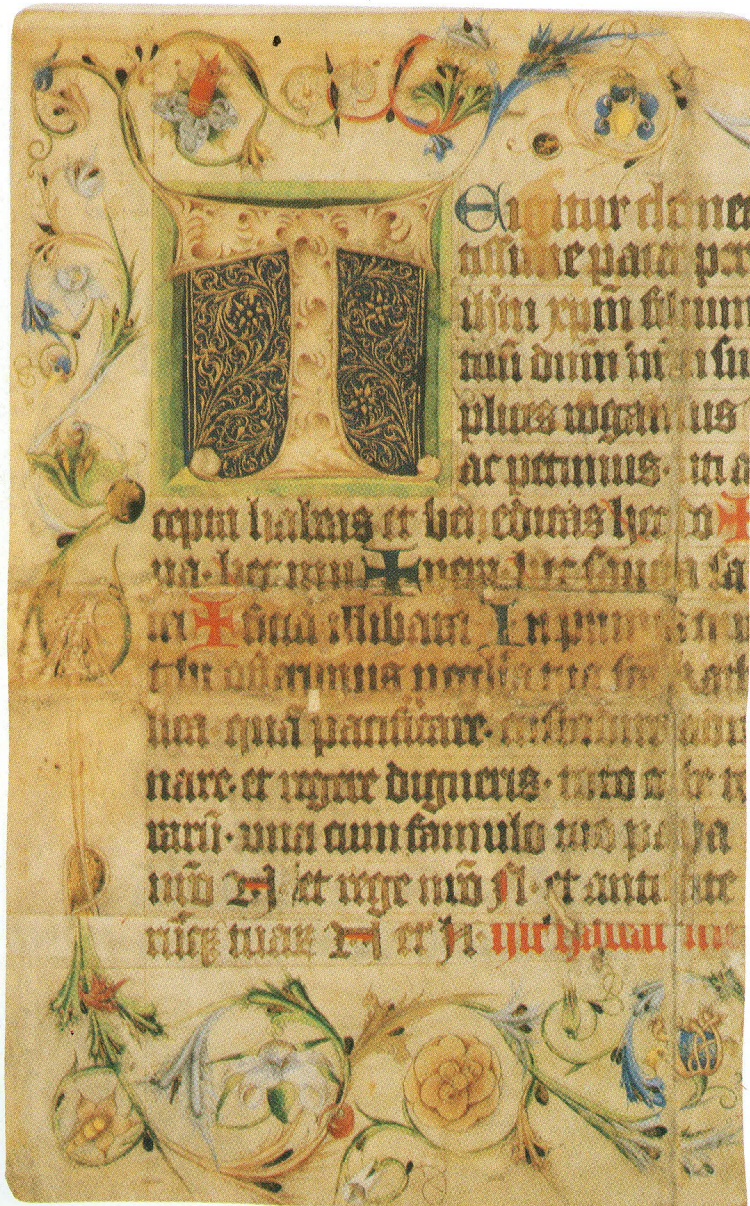 T Eigitur cleme
tissime pater per
ihm xpm filium
tuū dnm nrm su
plices rogamus
ac petimus. uti a
cepta habeas et benedicas hec do ✠
na. hec mu ✠ nera. hec sancta sa
cri ✠ ficia illibata In primis
tibi offerimus ecclia tua
lica quā pacificare. custodire adu
nare. et regere digneris. toto orbe
rarū. una cum famulo tuo papa
nrō N et rege nrō N. et antistite
N et N. hic habeat me